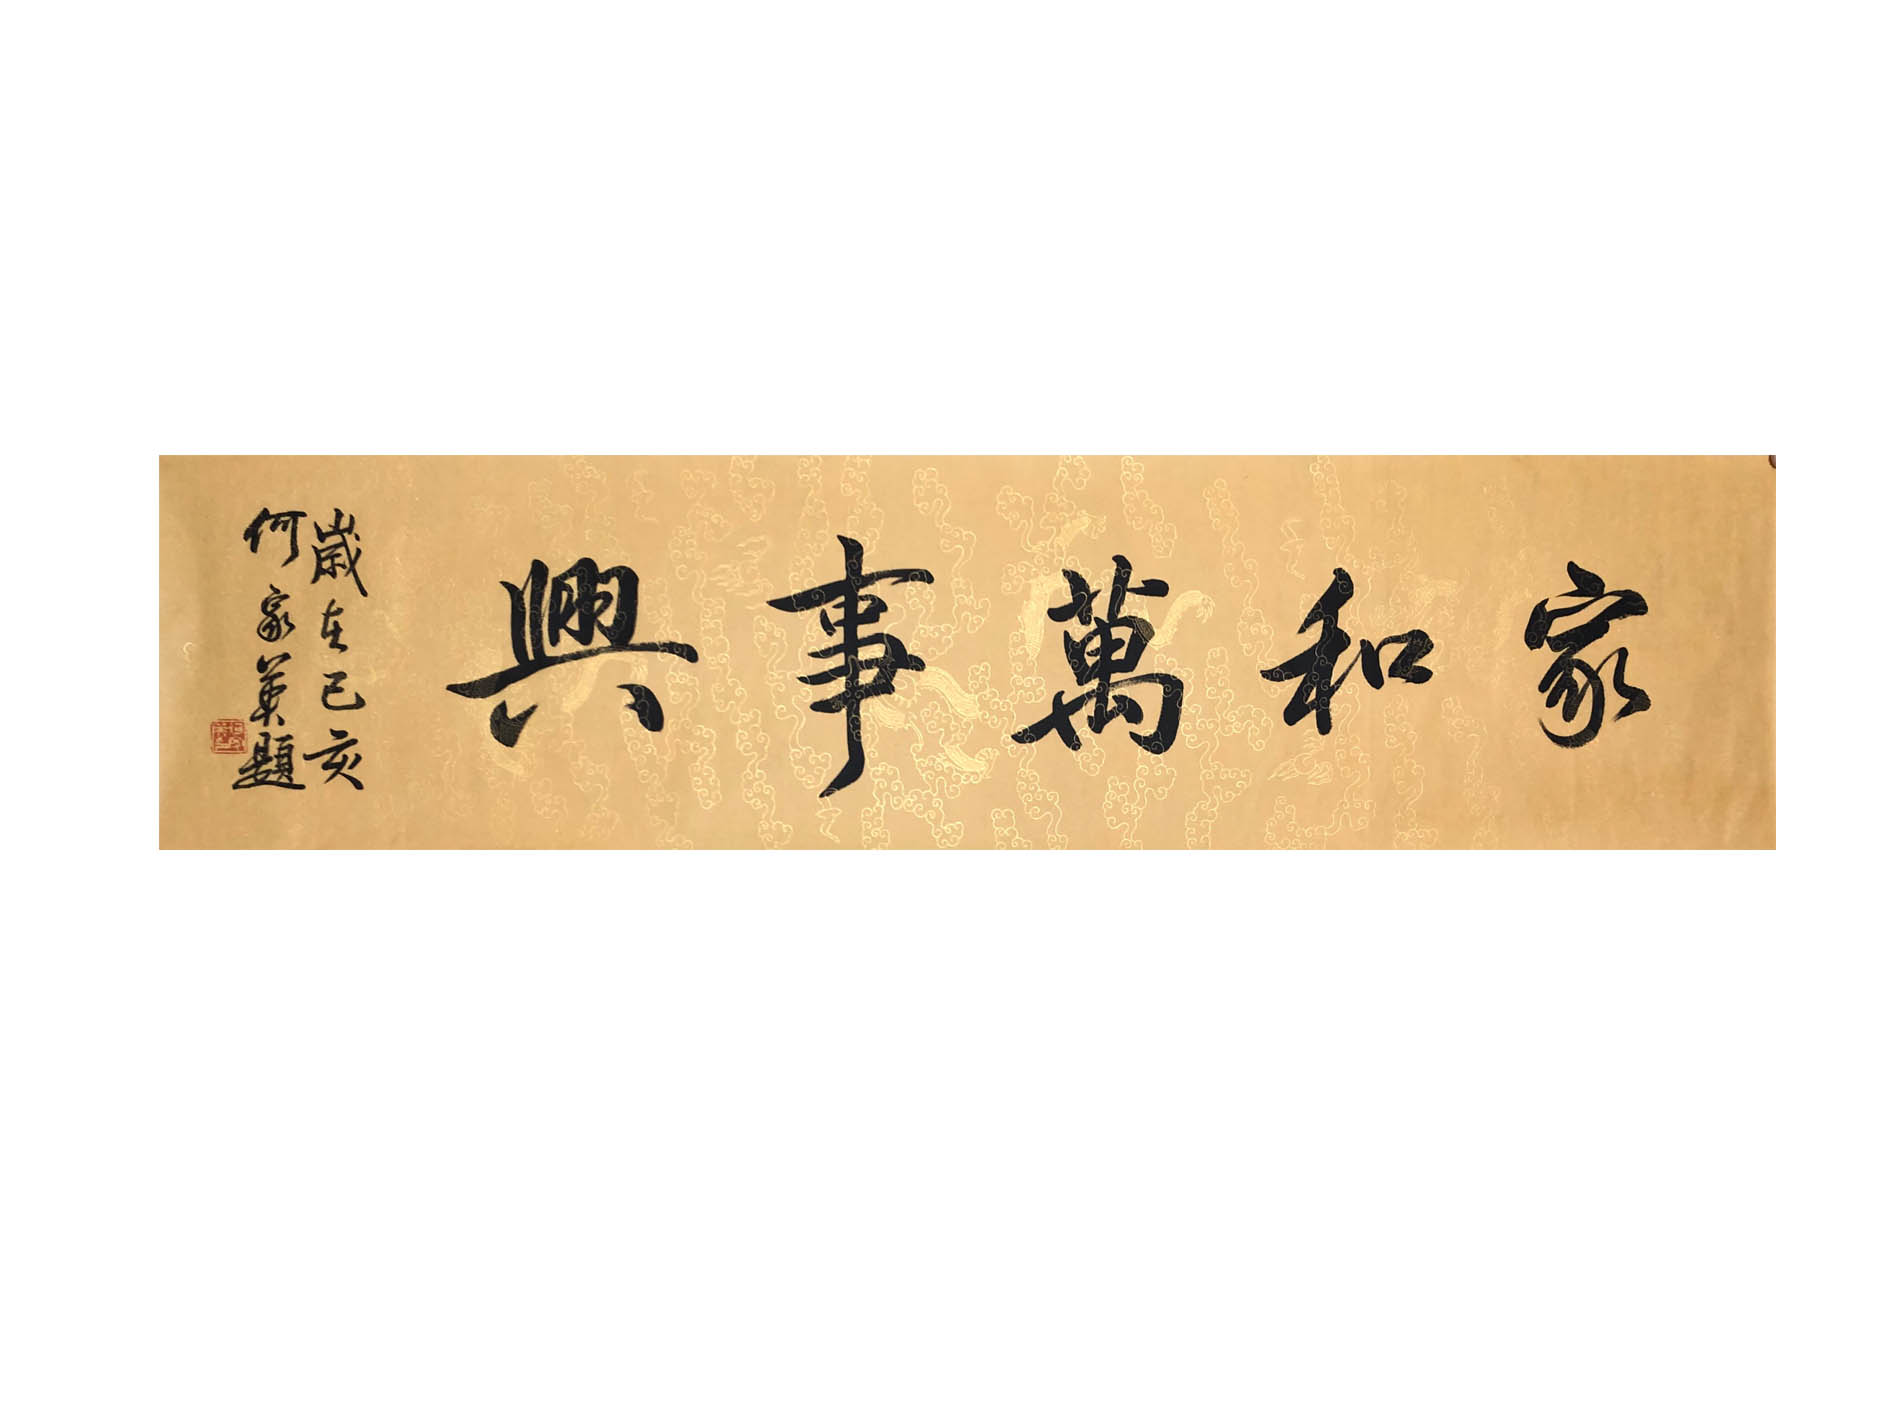 家和萬事興
歲在己亥
何家英題